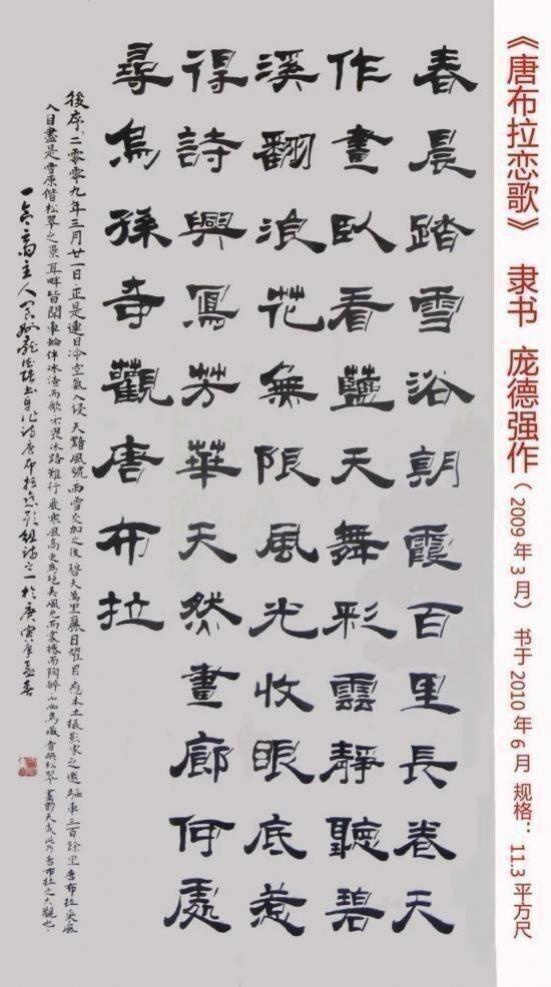 《唐布拉恋歌》 隶书 庞德强作（2009年3月） 书于2010年6月 规格：11.3平方尺
春晨踏雪浴朝霞百里長卷天
作畫臥看藍天舞彩雲靜聽碧
溪翻浪花無限風光收眼底惹
得詩興寫芳華天然畫廊何處
尋烏孫奇觀唐布拉
後序:二零零九年三月廿一日,正是連日冷空氣入侵,天黯風號,雨雪交加之後,碧天萬里,麗日耀目,應本土攝影家之邀,驅車三百餘里,唐布拉采風
入目盡是雪原偕松翠之景,耳畔皆聞車輪伴冰渣而歌,不畏冰路難行,嚴寒風高,更為絕美風光而震撼而陶醉,雪映松翠,畫韵天成,此乃唐布拉之大觀也.
一齋主人龐德強書自作詩唐布拉戀歌組詩之一於庚寅年孟春